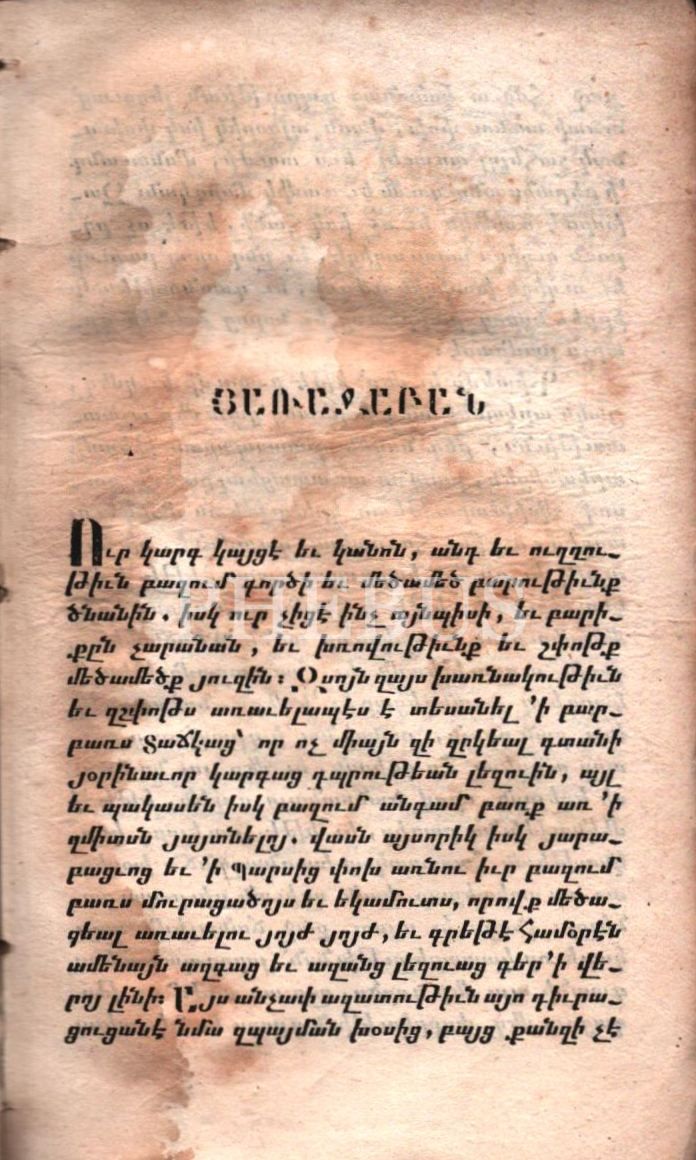 ՅԱՌԱՋԱԲԱՆ
Ուր կարգ կայցէ եւ կանոն, անդ եւ ուղղու-
թիւն բազում գործի եւ մեծամեծ բարութիւնք
ծնանին. իսկ ուր չիցէ ինչ այնպիսի, եւ բարի-
քըն չարանան, եւ խռովութիւնք եւ շփոթք
մեծամեծք յուզին։ Զսոյն զայս խառնակութիւն
եւ զշփոթս առաւելապէս է տեսանել ՚ի բար-
բառս Տաճկաց՝ որ ոչ միայն զի զրկեալ գտանի
յօրինաւոր կարգաց դպրութեան լեզուին, այլ
եւ պակասեն իսկ բազում անգամ բառք առ ՚ի
զմիտսն յայտնելոյ. վասն այսորիկ իսկ յարա-
բացւոց եւ ՚ի Պարսից փոխ առնու իւր բազում
բառս մուրացածոյս եւ եկամուտս, որովք մեծա-
ցեալ առաւելու յոյժ յոյժ, եւ գրեթէ համօրէն
ամենայն ազգաց եւ ազանց լեզուաց գեր ՚ի վե-
րոյ լինի։ Այս անչափ ազատութիւն այո դիւրա-
ցուցանէ նմա զպայման խօսից, բայց քանզի չէ